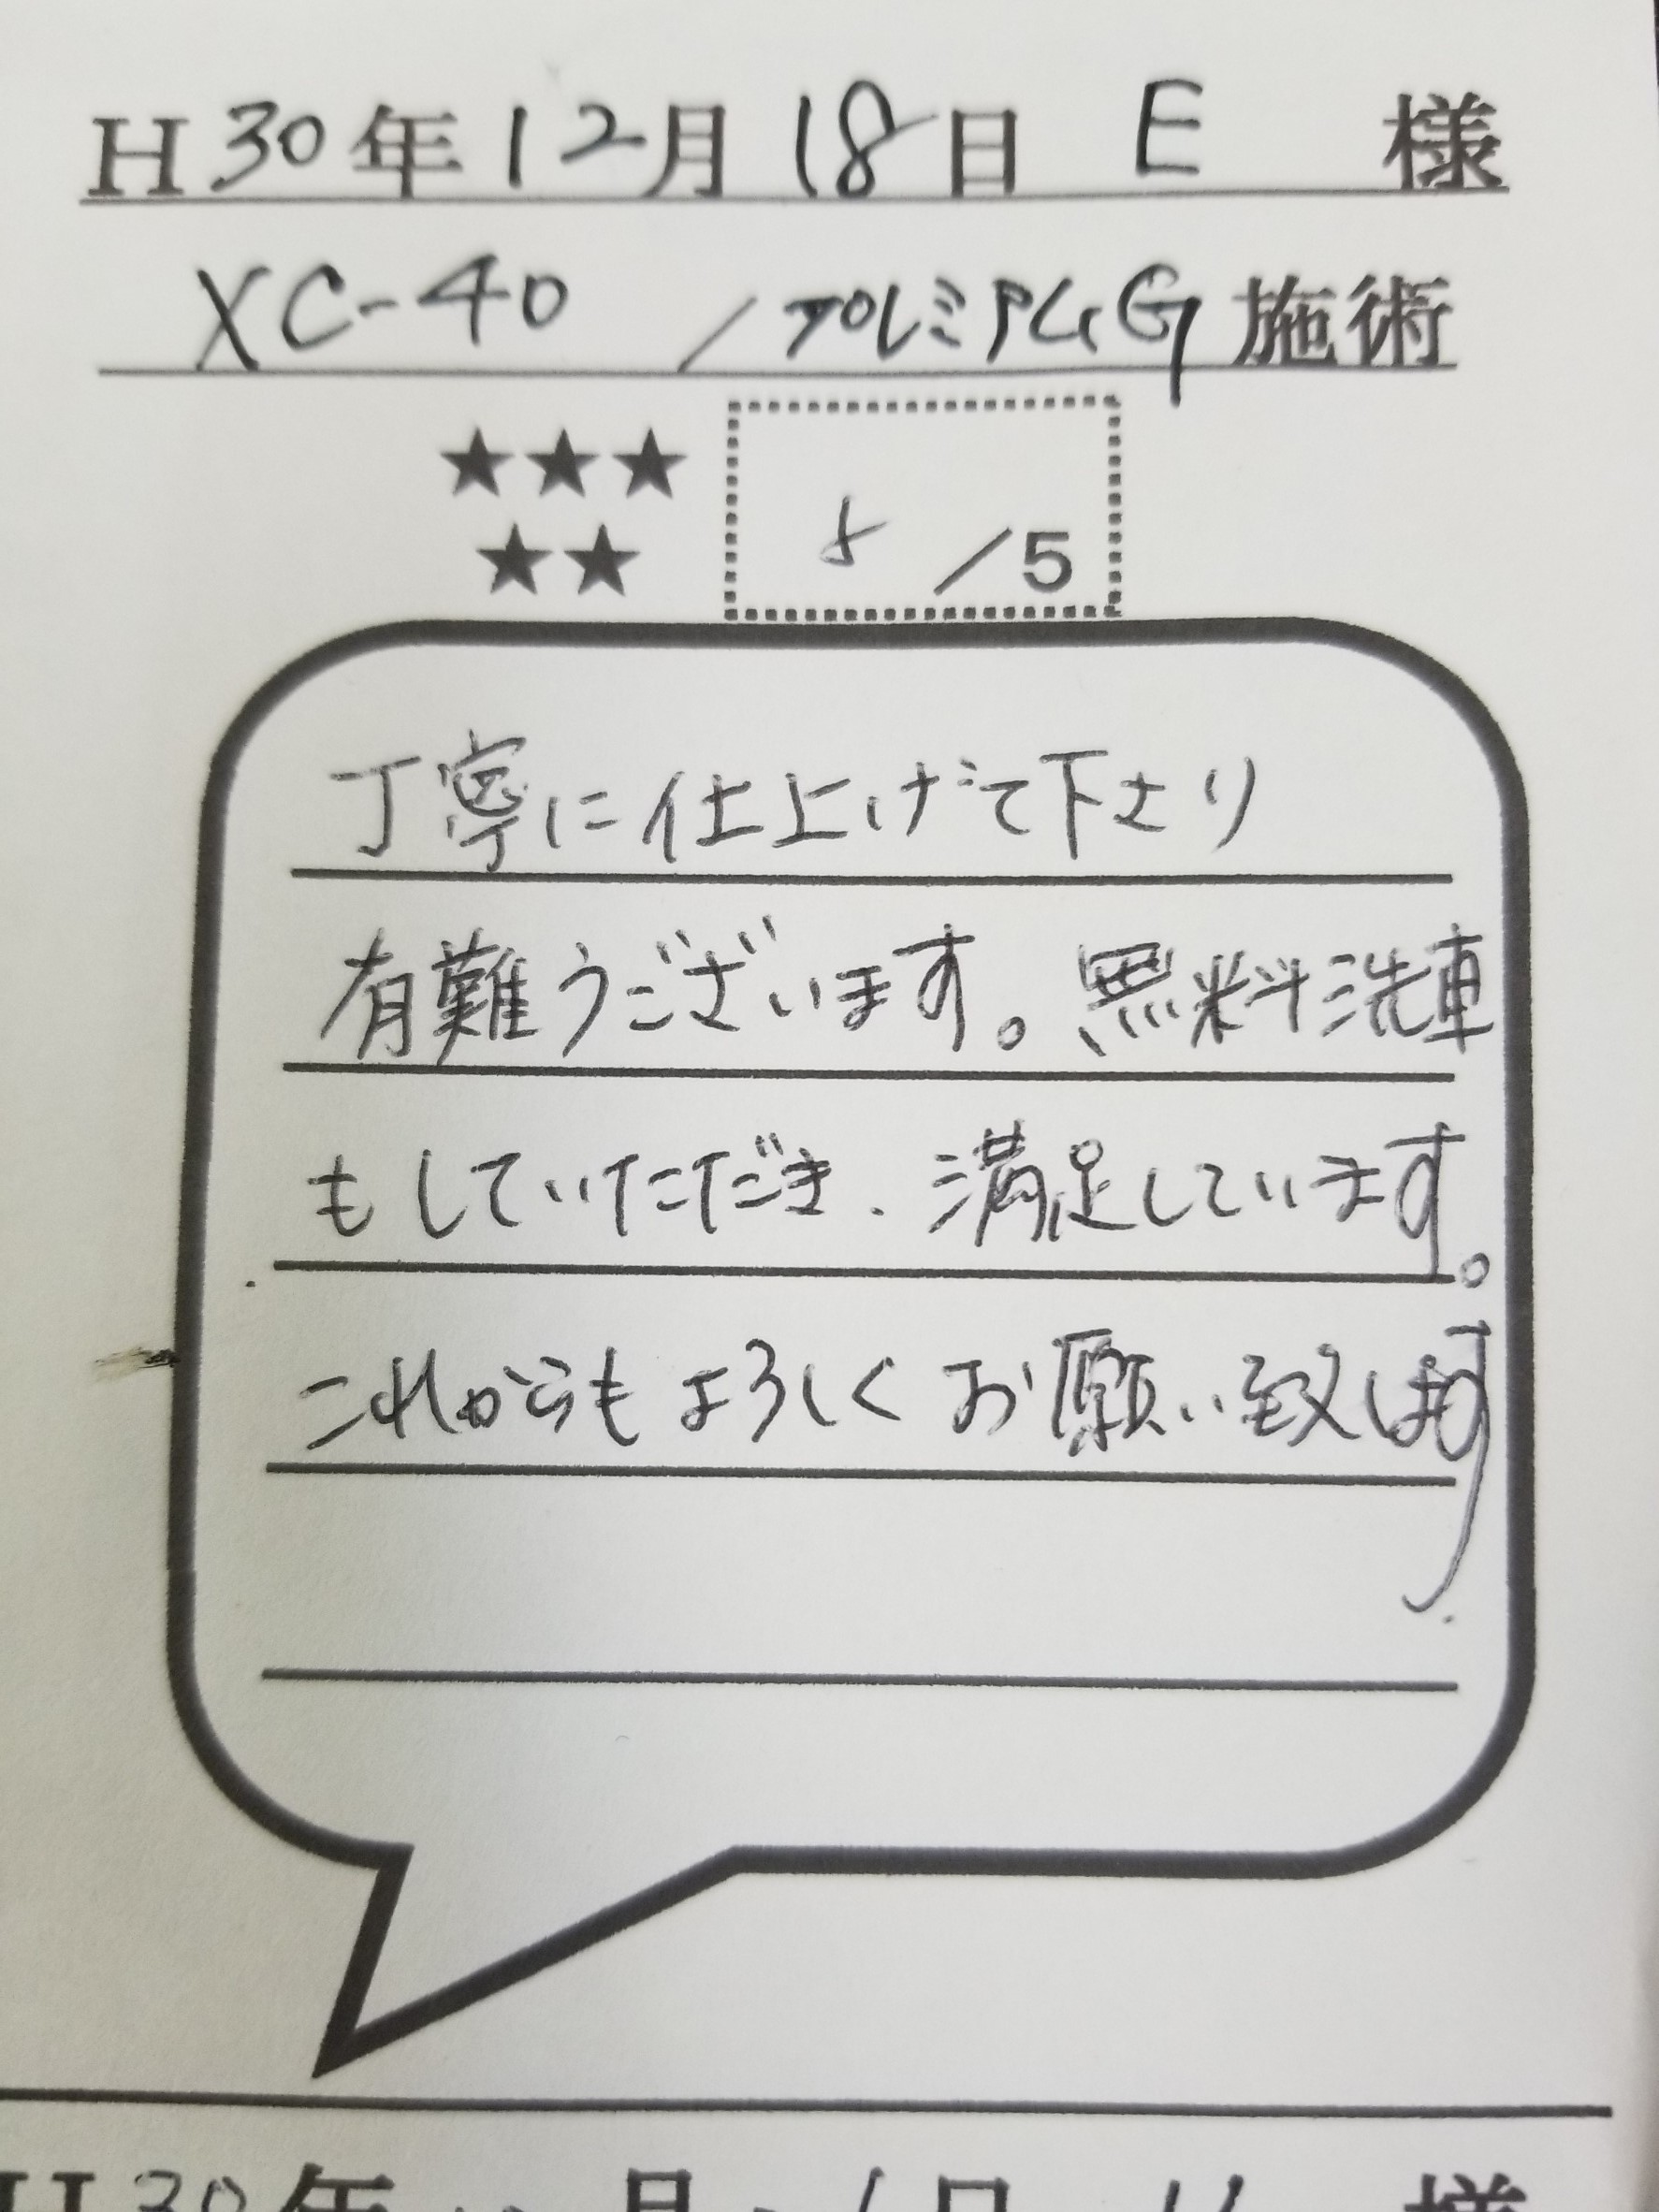 H30年12月18日 E 様
XC-40 /プレミアムG施術
★★★
★★
5/5
丁寧に仕上げて下さり
有難うございます。無料洗車
もしていただき、満足しています。
これからもよろしくお願い致します.
H30年 月 日 様